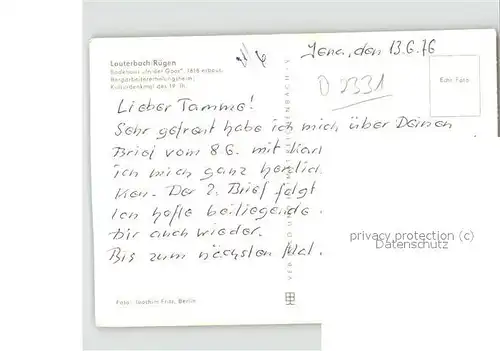 Lauterbach/Rügen
Badehaus „In der Goor", 1818 erbaut,
Bergarbeitererholungsheim,
Kulturdenkmal des 19. Jh.
Jena, den 13.6.76
D 5331
Echt Foto
Lieber Tamme!
Sehr gefreut habe ich mich über Deinen
Brief vom 8 6. mit Karl
ich mich ganz herzlich
Ken. Der 2. Brief folgt
Ich hoffe beiliegende.
Dir auch wieder.
Bis zum nächsten Mal.
privacy protection (c)
Datenschutz
Foto: Joachim Fritz, Berlin